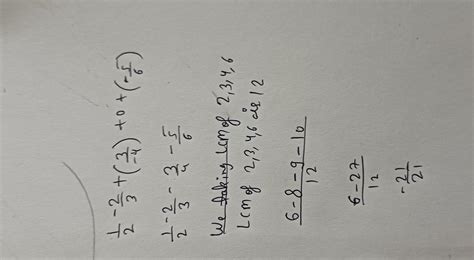 1/2 - 2/3 + (3/-4) + 0 + (-5/6)
1/2 - 2/3 - 3/4 - 5/6
We taking LCM of 2,3,4,6
LCM of 2,3,4,6 is 12
6-8-9-10/12
6-27/12
-21/21